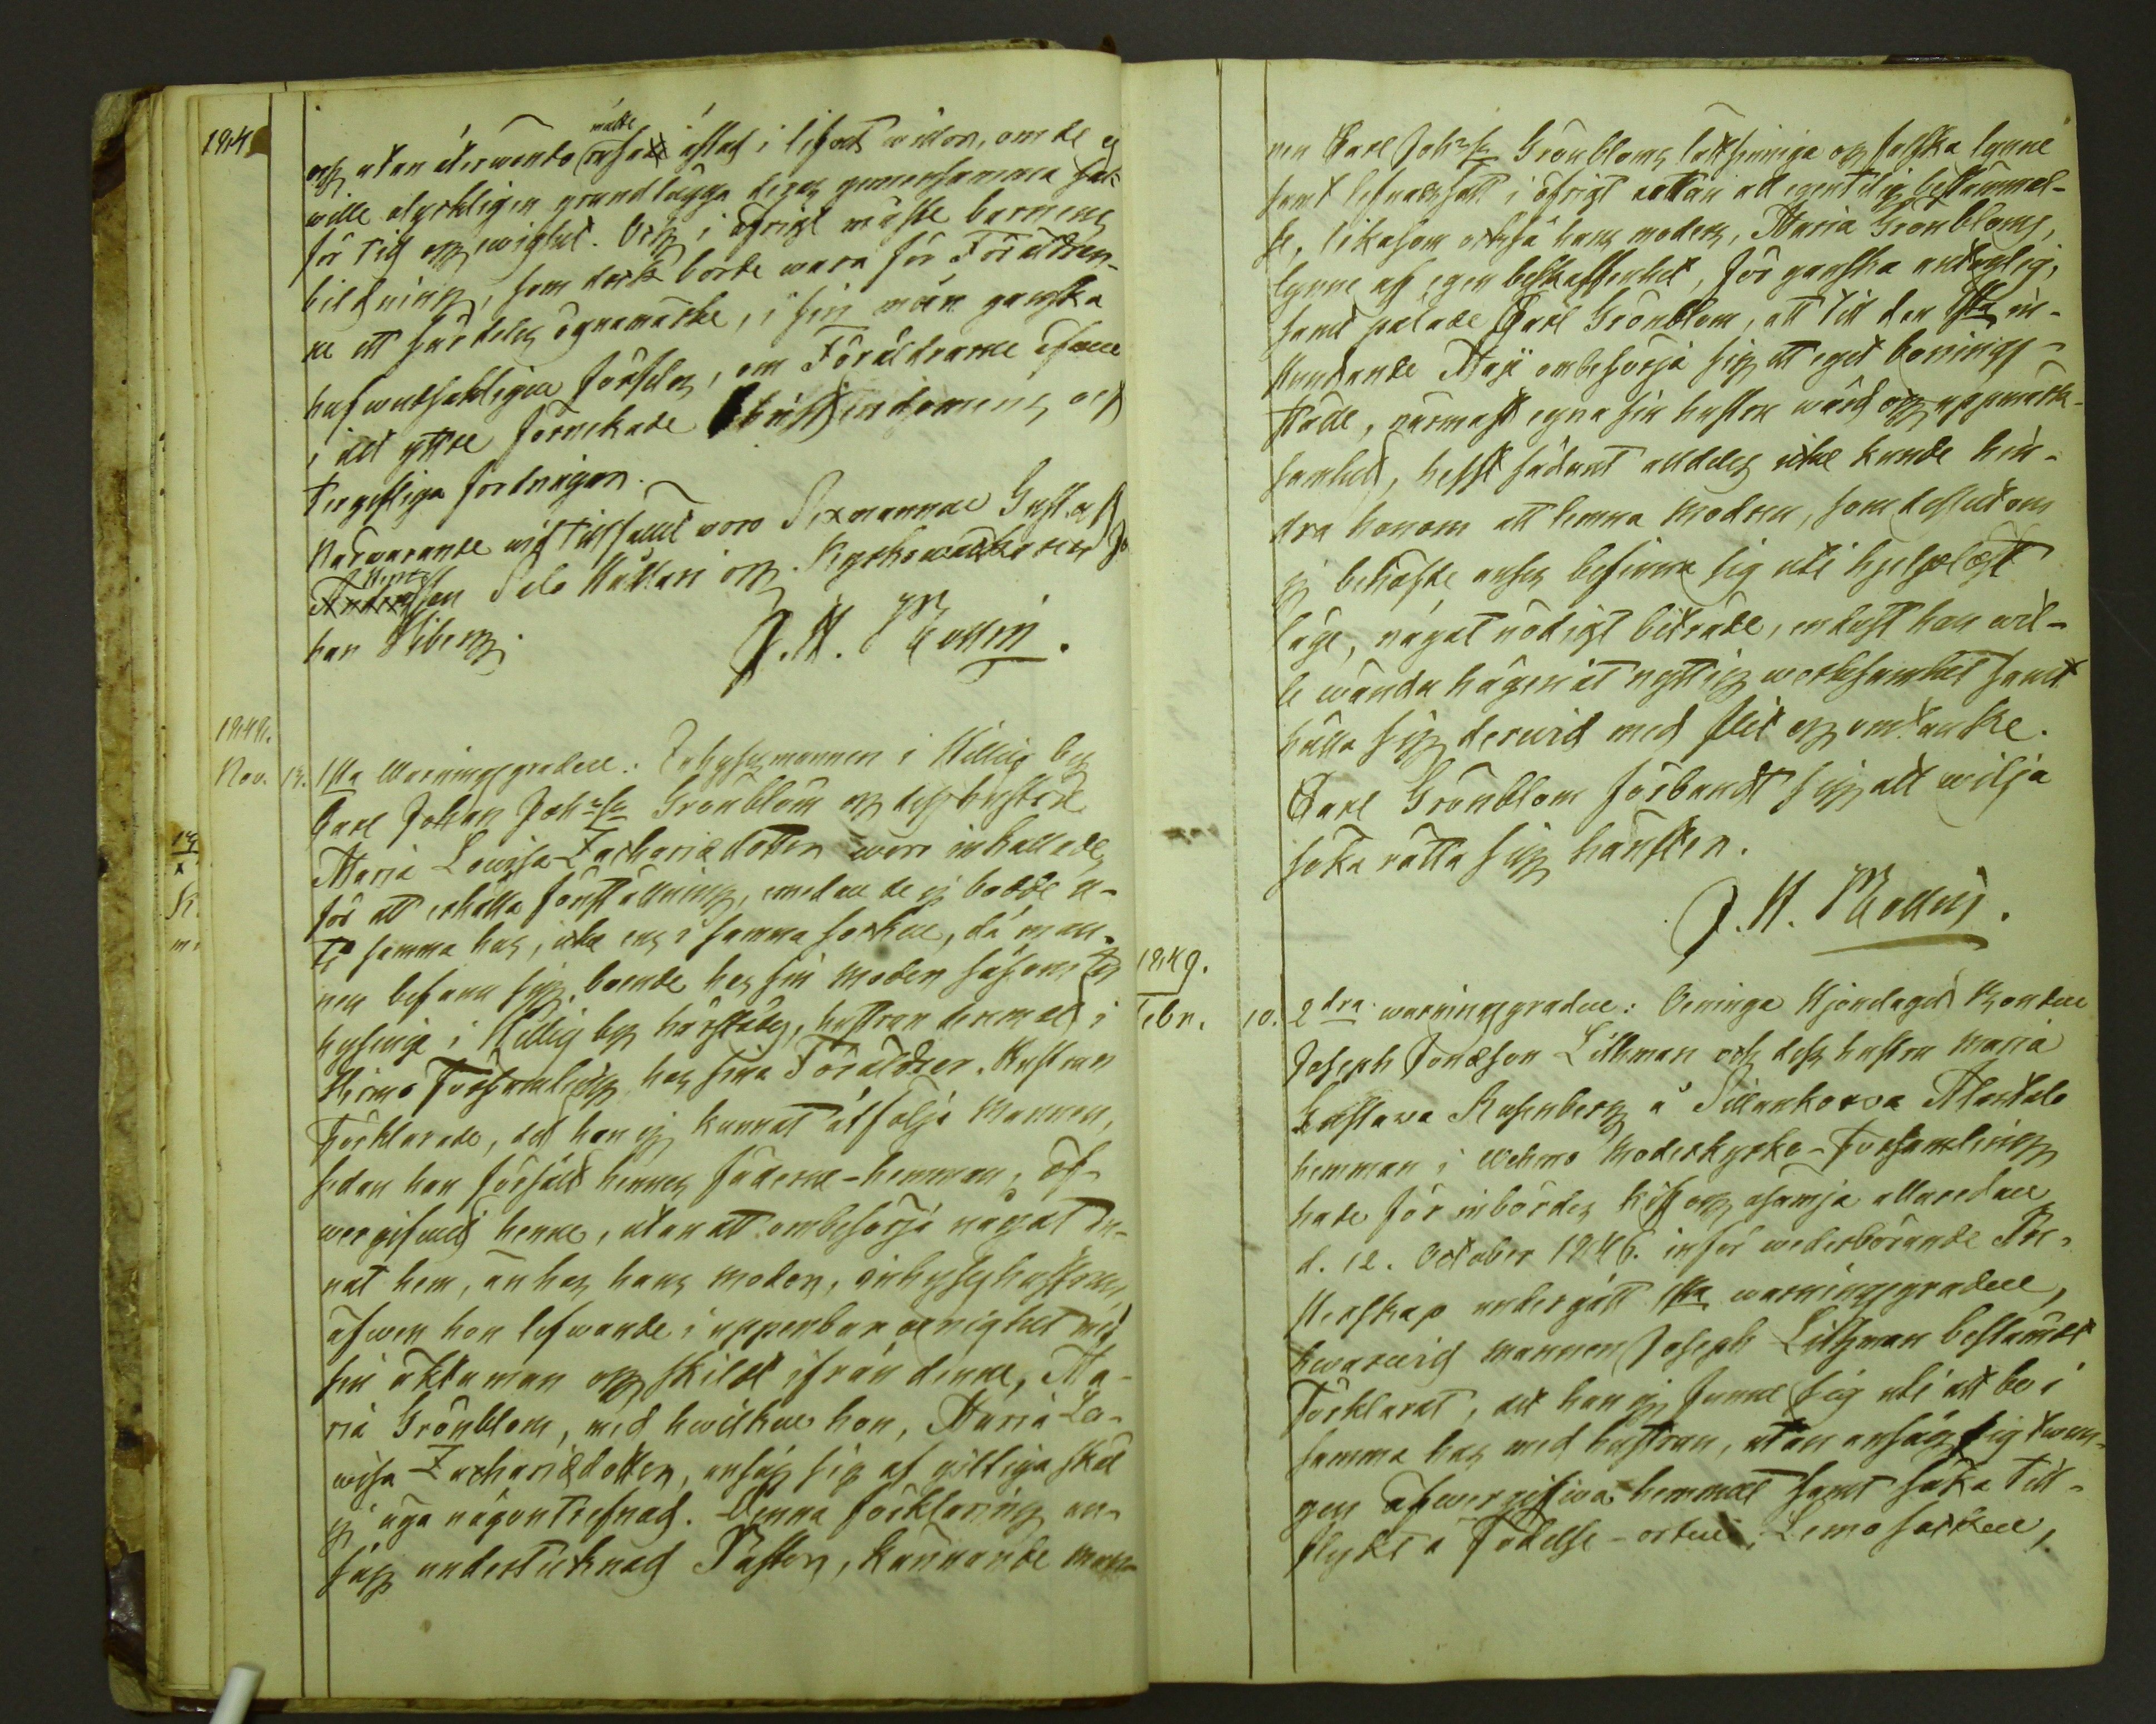 184
och utan återwändo måtte rusa åstad i lifvets willor, om de ej
wille olyckligen grundlägga deras gemensamma
för tid och ewighet. Och i öfrigt måste barnens
bildning, som dock borde wara för Föräldrar-
ne ett särdeles ögnamärke, i sin mån ganska
hufwudsakligen förfelas, om Föräldrarne äfwen
i det yttre förnekade Christendomens och
Närwarande wid tillfället woro Sexmannen Gust. Ad.
Sele Kyrkowäktaren Jo-
han Wiberg.
J. H. Rollin.
1848.
Nov. 19. 1sta Warningsgraden: Inhysesmannen i Killis by
Carl Johan Joh:s:n Grönblom och dess hustru
Maria Lowisa Zachariædotter woro inkallade
för att erhålla föreställning, emedan de ej bodde u-
ti samma hus, icke ens i samma socken, då man-
nen befann sig boende hos sin moder såsom in-
hysing i Killis by härstädes, hustrun deremot i
Församling hos sina Föräldrar. Hustrun
Förklarade, det hon ej kunnat åtfölja Mannen,
sedan han försålt hennes fäderne-hemman, öf-
wergifwit henne, utan att ombesörja något an-
nat hem, än hos hans moder, inhyseshustrun,
äfwen hon lefwande i uppenbar oenighet med
sin äkta man och skild ifrån denne, Ma-
ria Grönblom, med hwilken hon, Maria Lo-
wisa Zachariædotter, ansåg sig af giltiga skäl
ej äga någon trefnad. Denna förklaring an-
såg undertecknad Pastor, kännande man-
nen Carl Joh:s:n Grönbloms lättsinniga och falska lynne
samt lefnadssätt i öfrigt utan all egentelig bestämmel-
se, likasom också hans moders, Maria Grönbloms,
lynne af egen beskaffenhet, för ganska antaglig,
samt palade Carl Grönblom, att till den 1sta in-
stundande Maji ombesörja sig ett eget bonings-
ställe, närmast egna sin hustru wård och uppmärk-
samhet, helst sådant alldeles icke kunde hin-
dra honom att lemna Modren, som dessutom
ej behöfde anses befinna sig uti hjelplöst
läge, något nödigt biträde, endast han wil-
le wända hågen åt nyttig werksamhet samt
hålla sig derwid med flit och omtanke.
Carl Grönblom förbandt sig att wilja
söka rätta sig häruti.
J. H. Rollin.
1849.
Febr. 10. 2dra warningsgraden: Oeninga Hjonelaget Bonden
Joseph Jonæson Lithman och dess hustru Maria
Gustava Rosenberg å Sillankorva Alastalo
hemman i Wehmo Moderkyrko-Församling
hade för inbördes kif och osämja allaredan
d. 12. October 1846. inför wederbörande Pre-
sterskap undergått 1sta warningsgraden,
hwarwid mannen Joseph Lithman bestämdt
Förklarat, det han ej funne sig uti att bo i
samma hus med hustrun, utan ansåg sig twun-
gen öfwergifwa hemmet samt söka till-
flykt i Födelse-orten, Lemo socken,